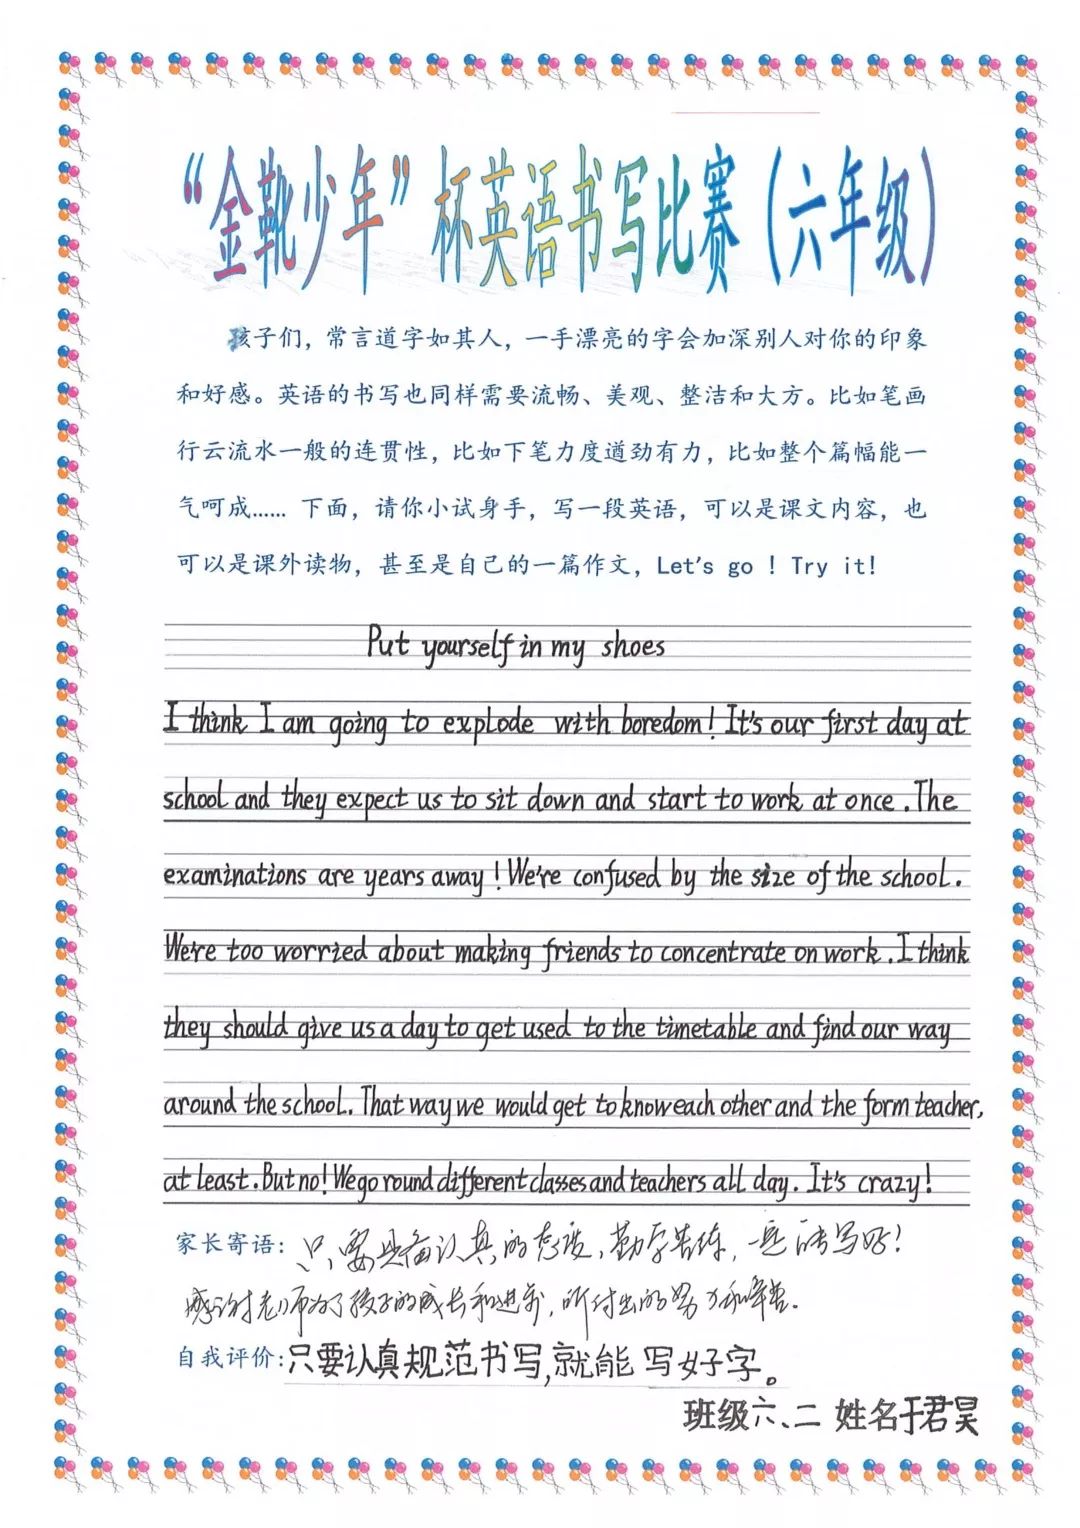 “金靴少年”杯英语书写比赛（六年级）
孩子们，常言道字如其人，一手漂亮的字会加深别人对你的印象
和好感。英语的书写也同样需要流畅、美观、整洁和大方。比如笔画
行云流水一般的连贯性，比如下笔力度道劲有力，比如整个篇幅能一
气呵成…… 下面，请你小试身手，写一段英语，可以是课文内容，也
可以是课外读物，甚至是自己的一篇作文，Let's go ! Try it!
Put yourself in my shoes
I think I am going to explode with boredom! It's our first day at
school and they expect us to sit down and start to work at once. The
examinations are years away! We're confused by the size of the school.
We're too worried about making friends to concentrate on work. I think
they should give us a day to get used to the timetable and find our way
around the school. That way we would get to know each other and the form teacher,
at least. But no! We go round different classes and teachers all day. It's crazy!
家长寄语：只要具备认真的态度，勤学苦练，一定能写好！
感谢老师为了孩子的成长和进步，所付出的努力和辛苦.
自我评价：只要认真规范书写，就能写好字。
班级六、二 姓名于君昊